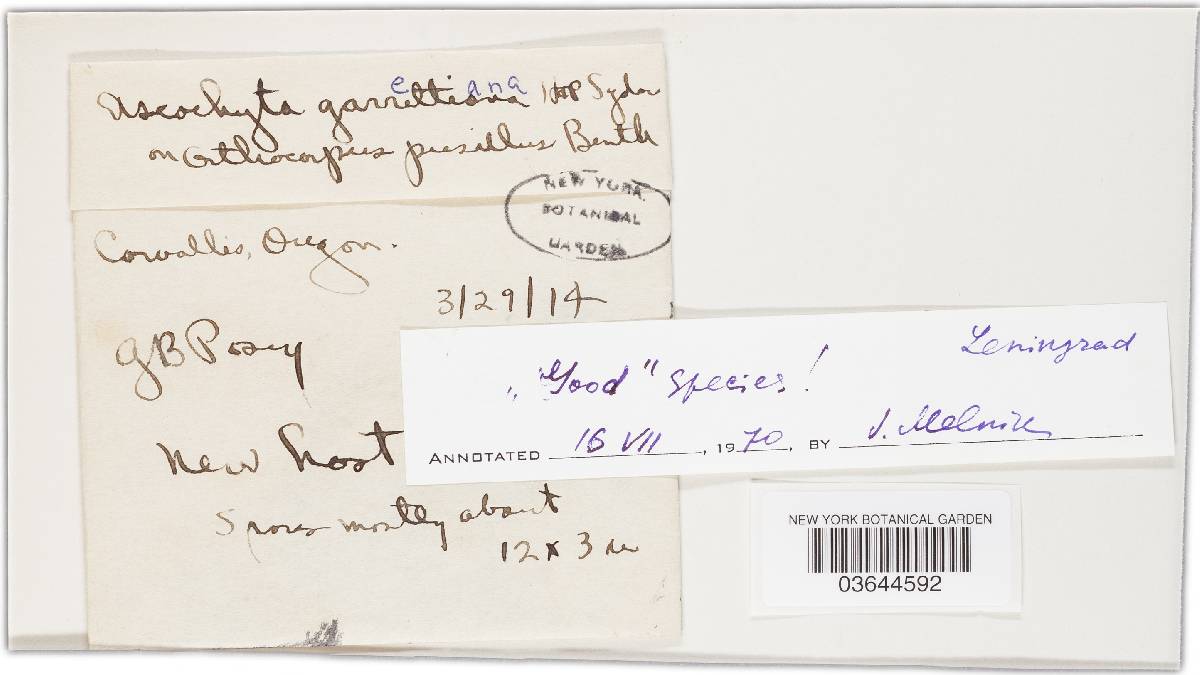 Ascochyta garrettiana Syd
e ana
on Orthocarpus pusillus Benth
NEW YORK
BOTANICAL
GARDEN
Corvallis, Oregon.
3/29/14
GB Posey
New host
Spores mostly about
12 x 3 u
Leningrad
„"Good" species!
ANNOTATED 16 VII, 1970, BY J. Melnik
NEW YORK BOTANICAL GARDEN
03644592